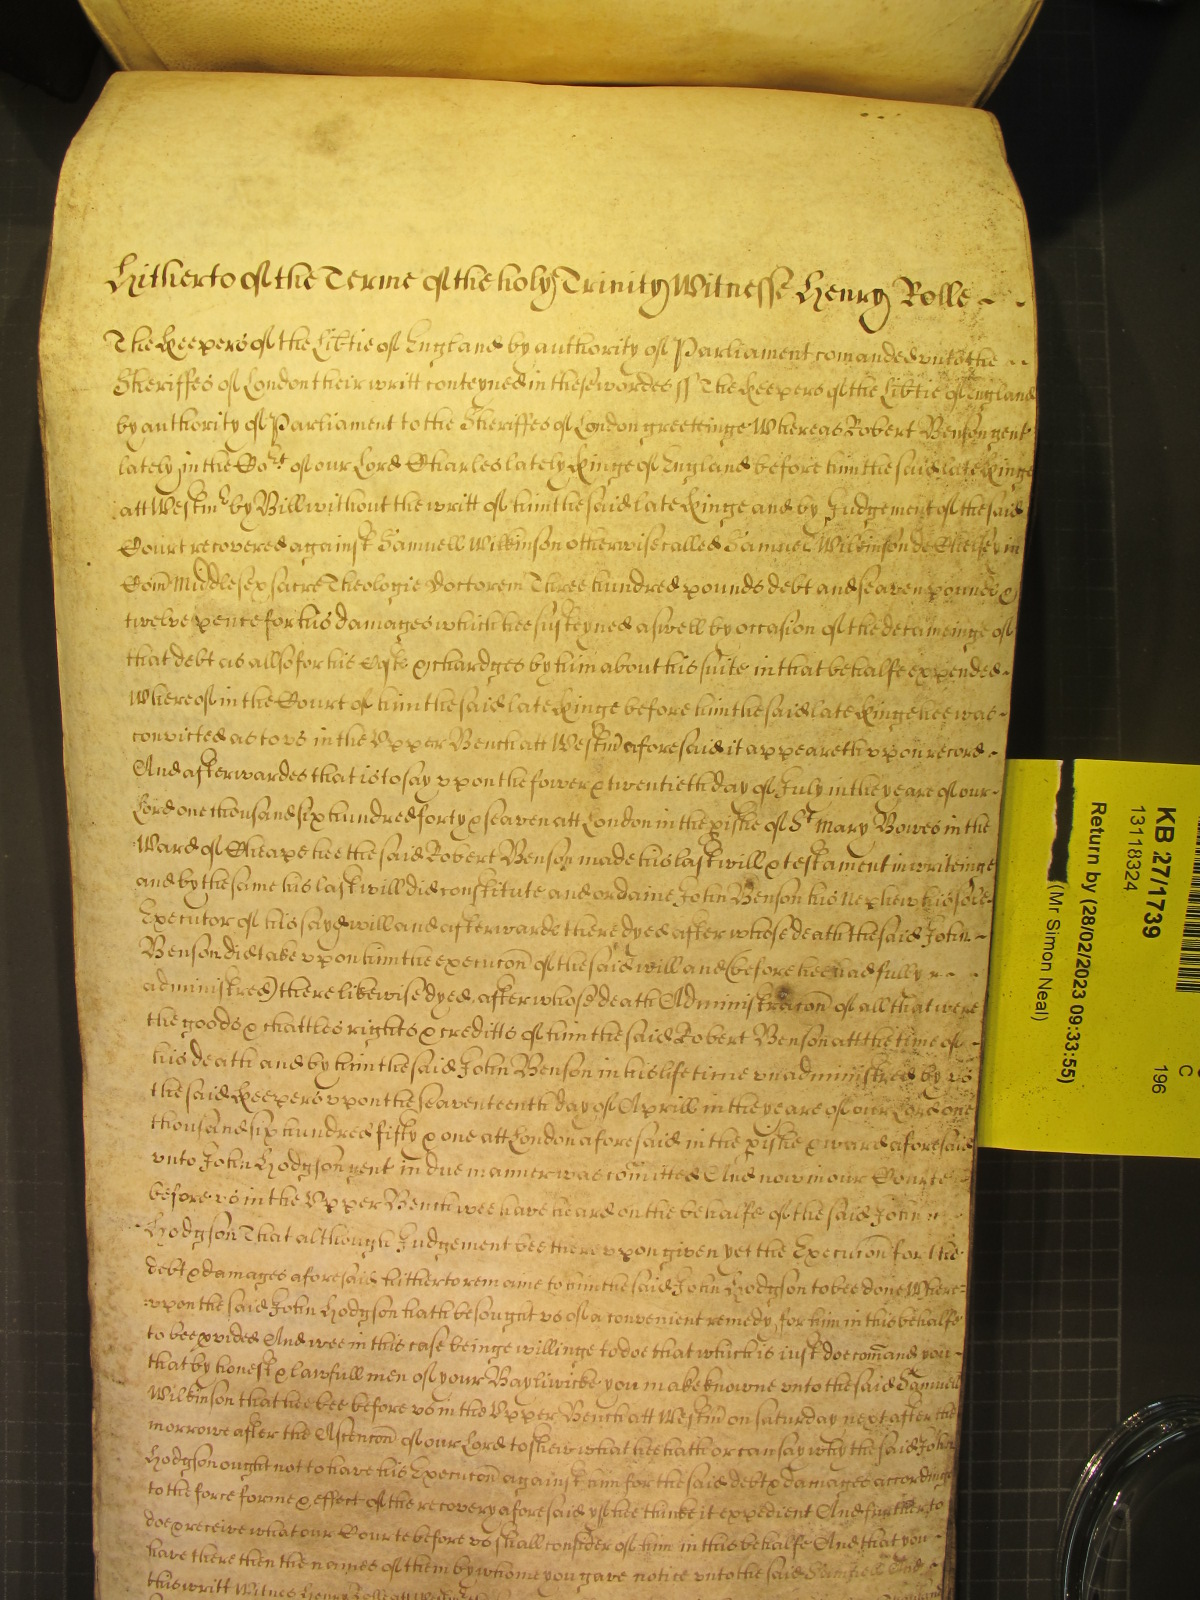 Hitherto of the Terme of the holy Trinity Witnesse Henry Rolle
The Keepers of the Libtie of England by authority of Parliament comanded unto the
Sheriffes of London their writt conteyned in these wordes ss The Keepers of the Libtie of England
by authority of Parliament to the Sheriffes of London greetinge Whereas Robert Benson gent
lately in the Cort of our Lord Charles lately Kinge of England before him the said late Kinge
att Westmr by Bill without the writt of him the said late Kinge and by Judgement of the said
Court recovered against Samuell Wilkinson otherwise called Samuel Wilkinson de Chelsey in
Com Middlesex sacre Theologie Doctorem Three hundred pounds debt and seaven pounds &
twelve pence for his damages which hee susteyned aswell by occasion of the deteineinge of
that debt as allso for his Costs & chardges by him about his suite in that behalfe expended
Whereof in the Court of him the said late Kinge before him the said late Kinge hee was
convicted as to us in the Upper Bench att Westm aforesaid it appeareth uppon record
And afterwardes that is to say uppon the fower & twentieth day of July in the yeare of our
Lord one thousand six hundred forty & seaven att London in the pishe of St Mary Bowes in the
Ward of Cheape hee the said Robert Benson made his last will & testament in writeinge
and by the same his last will did constitute and ordaine John Benson his Nephew his sole
Executor of his sayd will and afterwards there dyed after whose death the said John
Benson did take uppon him the execucon of the said will and (before hee had fully
administred) there likewise dyed, after whose death Administracon of all that were
the goods & chattles rights & creditts of him the said Robert Benson att the time of
his death and by him the said John Benson in his life time unadministred by us
the said Keepers uppon the seaventeenth day of Aprill in the yeare of our Lord one
thousand six hundred fifty & one att London aforesaid in the pishe & ward aforesaid
unto John Hodgson gent in due manner was comitted And now in our Courte
before us in the Upper Bench wee have heard on the behalfe of the said John
Hodgson That although Judgement bee thereuppon given yet the Execucion for the
debt & damages aforesaid hitherto remaine to him the said John Hodgson to bee done Where
uppon the said John Hodgson hath besought us of a convenient remedy for him in this behalfe
to bee pvided And wee in this case beinge willinge to doe that which is iust doe comand you
that by honest & lawfull men of your Bayliwicke you make knowne unto the said Samuell
Wilkinson that hee bee before us in the Upper Bench att Westm on saturday next after the
morrowe after the Ascencon of our Lord to shew what hee hath or can say why the said John
Hodgson ought not to have his Execucon against him for the said debt & damages accordinge
to the force forme & effect of the recovery aforesaid yf hee thinke it expedient And further to
doe & receive what our Courte before us shall consider of him in this behalfe And that you
have there then the names of them by whome you gave notice unto the said Samuell And
this writt Witnes Henry Rolle att Westmr
KB 27/1739
13118324
Return by (28/02/2023 09:33:55)
(Mr Simon Neal)
C
196